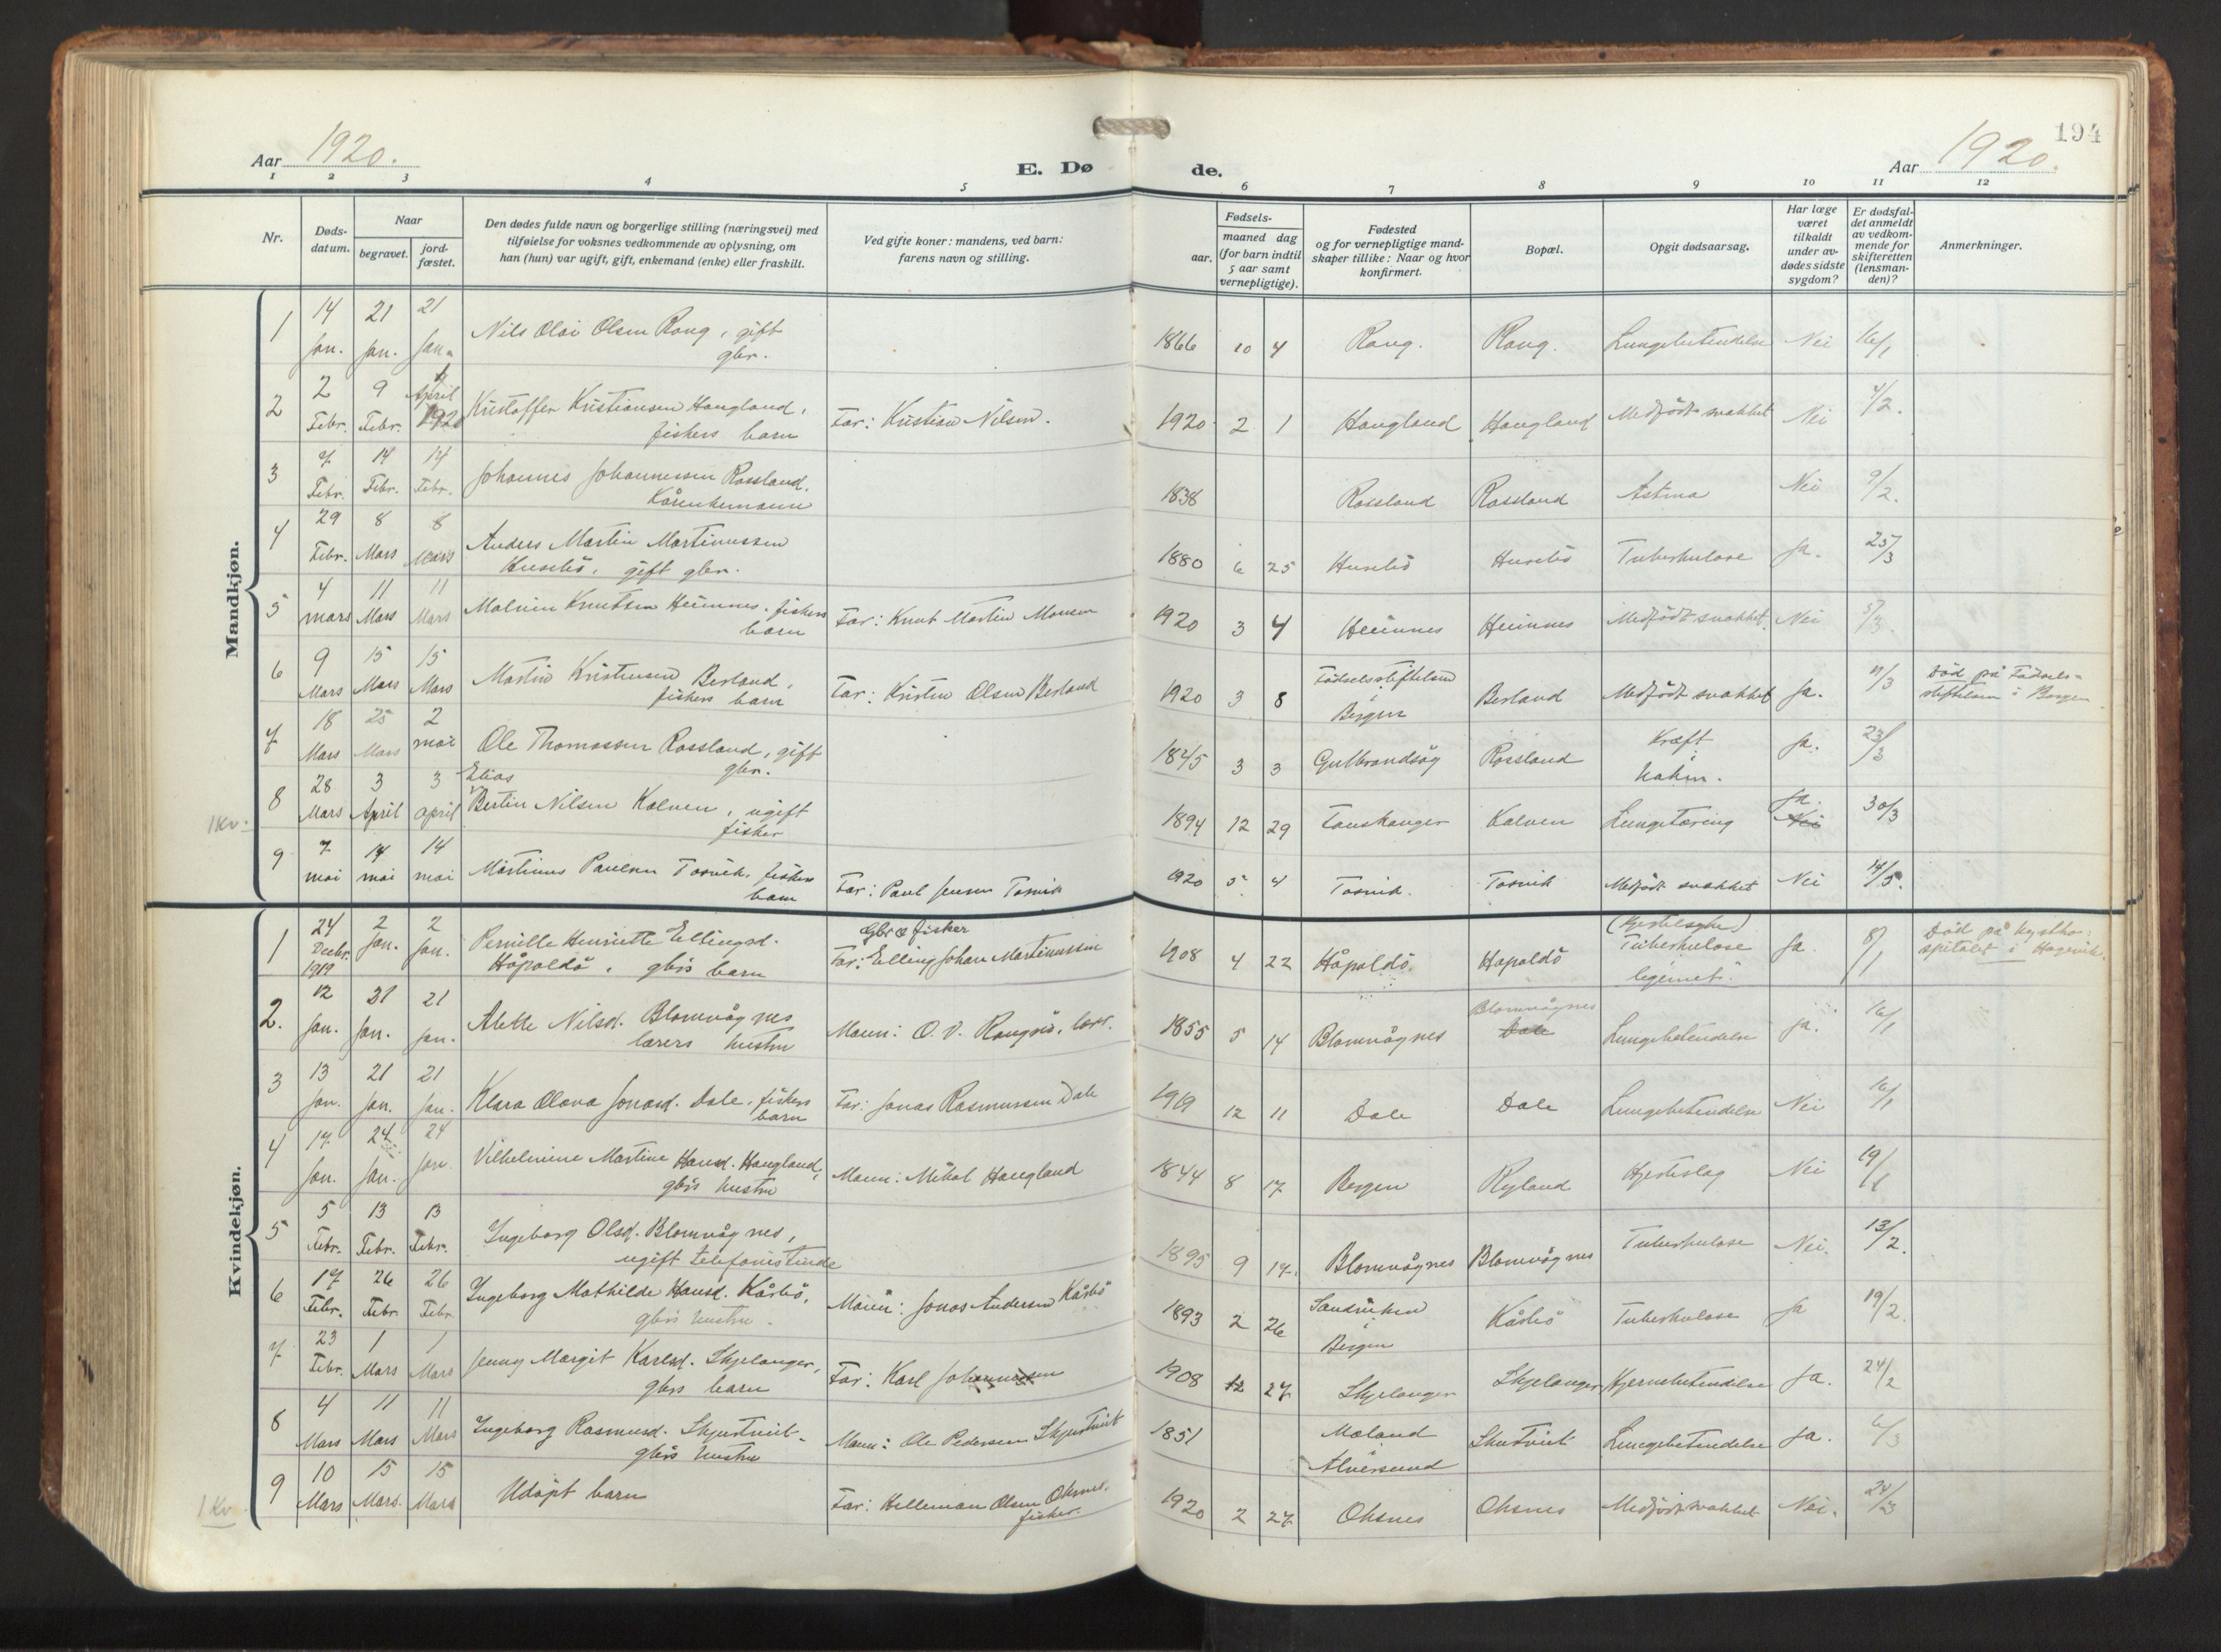 194
Aar 1920.
E. Dø de.
Aar 1920.
1 2 3 4 5 6 7 8 9 10 11 12
Nr.
Døds-
datum.
Naar
begravet.
jord-
fæstet.
Den dødes fulde navn og borgerlige stilling (næringsvei) med
tilføielse for voksnes vedkommende av oplysning, om
han (hun) var ugift, gift, enkemand (enke) eller fraskilt.
Ved gifte koner: mandens, ved barn:
farens navn og stilling.
Fødsels-
aar.
maaned dag
(for barn indtil
5 aar samt
vernepligtige).
Fødested
og for vernepligtige mand-
skaper tillike: Naar og hvor
konfirmert.
Bopæl.
Opgit dødsaarsag.
Har læge
været
tilkaldt
under av-
dødes sidste
sygdom?
Er dødsfal-
det anmeldt
av vedkom-
mende for
skifteretten
(lensman-
den)?
Anmerkninger.
Mandkjøn.
1 14 Jan. 21 Jan. 21 Jan. Nils Olai Olsen Rong, gift
gbr.
1866 10 4 Rong. Rong. Lungebetendelse Nei 16/1
2 2 Febr. 9 Febr. April 1920 Kristoffer Kristiansen Haugland,
fiskers barn
Far: Kristian Nilsen.
1920 2 1 Haugland Haugland Medfödt svakhet Nei 4/2.
3 7 Febr. 14 Febr. 14 Febr. Johannes Johannessen Rossland.
Kårenkemann
1838 Rossland Rossland Astma Nei 9/2.
4 29 Febr. 8 Mars 8 Mars Anders Martin Martinussen
Husebö, gift gbr.
1880 6 25 Husebö Husebö Tuberkulose Ja. 25/3
5 4 mars 11 Mars 11 Mars Malvin Knutsen Heimnes, fiskers
barn
Far: Knut Martin Monsen
1920 3 4 Heimnes Heimnes Medfödt svakhet. Nei 5/3.
6 9 Mars 15 Mars 15 Mars Martin Kristensen Berland,
fiskers barn
Far: Kristen Olsen Berland
1920 3 8 Födselsstiftelsen
i
Bergen
Berland Medfödt svakhet Ja. 11/3 Död på Födsels-
stiftelsen i Bergen
7 18 Mars 25 Mars 2 mai Ole Thomassen Rossland, gift
gbr.
1845 3 3 Gulbrandsög Rossland Kræft
i
haken. Ja. 23/3
8 28 Mars 3 April 3 april Elias
Bertin Nilsen Kalven, ugift
fisker
1894 12 29 Tauskanger Kalven Lungetæring Ja.
Nei 30/3
1 Kv.
9 7 mai 14 mai 14 mai Martinus Paulsen Tosvik, fiskers
barn
Far: Paul Jensen Tosvik
1920 5 4 Tosvik. Tosvik Medfödt svakhet Nei 14/5.
Kvindekjøn.
1 24 Decbr. 1919 2 Jan. 2 Jan. Pernille Henriette Ellingsd.
Håpoldö, gbrs barn
Gbr & fisker
Far: Elling Johan Martinussen
1908 4 22 Håpoldö. Håpoldö (Kjertelsyke)
Tuberkulose
legemet. Ja 8/1 Död på Kystho-
spitalet i Hagevik.
2. 12 Jan. 21 Jan. 21 Jan. Alette Nilsd. Blomvågnes
lærers hustru
Mann: O. V. Rongsö, lær.
1855 5 14 Blomvågnes Blomvågnes
Dale
Lungebetendelse Ja. 16/1
3 13 Jan. 21 Jan. 21 Jan. Klara Olava Jonasd. Dale, fiskers
barn
Far: Jonas Rasmussen Dale
1919 12 11 Dale Dale Lungebetendelse Nei 16/1
4 17 Jan. 24 Jan. 24 Jan. Vilhelmine Martine Hansd. Haugland,
gbrs hustru
Mann: Mikal Haugland
1844 8 17 Bergen Ryland Hjerteslag Nei 19/1
5 5 Febr. 13 Febr. 13 Febr. Ingeborg Olsd. Blomvågnes,
ugift telefonistinde
1895 9 17. Blomvågnes Blomvågnes Tuberkulose Nei. 13/2.
6 17 Febr. 26 Febr. 26 Febr. Ingeborg Mathilde Hansd. Kårbö,
gbrs hustru.
Mann: Jonas Andersen Kårbö
1893 2 26 Sandviken
i
Bergen
Kårbö Tuberkulose Ja 19/2.
7 23 Febr. 1 Mars 1 Mars Jenny Margit Karlsd. Skjelanger,
gbrs barn
Far: Karl Johannessen
1908 12 27 Skjelanger Skjelanger Hjernebetendelse Ja. 24/2
8 4 Mars 11 Mars 11 Mars Ingeborg Rasmusd. Skjertveit.
gbrs hustru
Mann: Ole Pedersen Skjertveit
1851 Moland
i
Alversund
Skutveit Lungebetendelse Ja. 6/3
9 10 Mars 15 Mars. 15 Mars Udöpt barn
Far: Helleman Olsen Oksnes.
fisker.
1920 2 27 Oksnes Oksnes Medfödt svakhet Nei. 24/3
1 Kv.